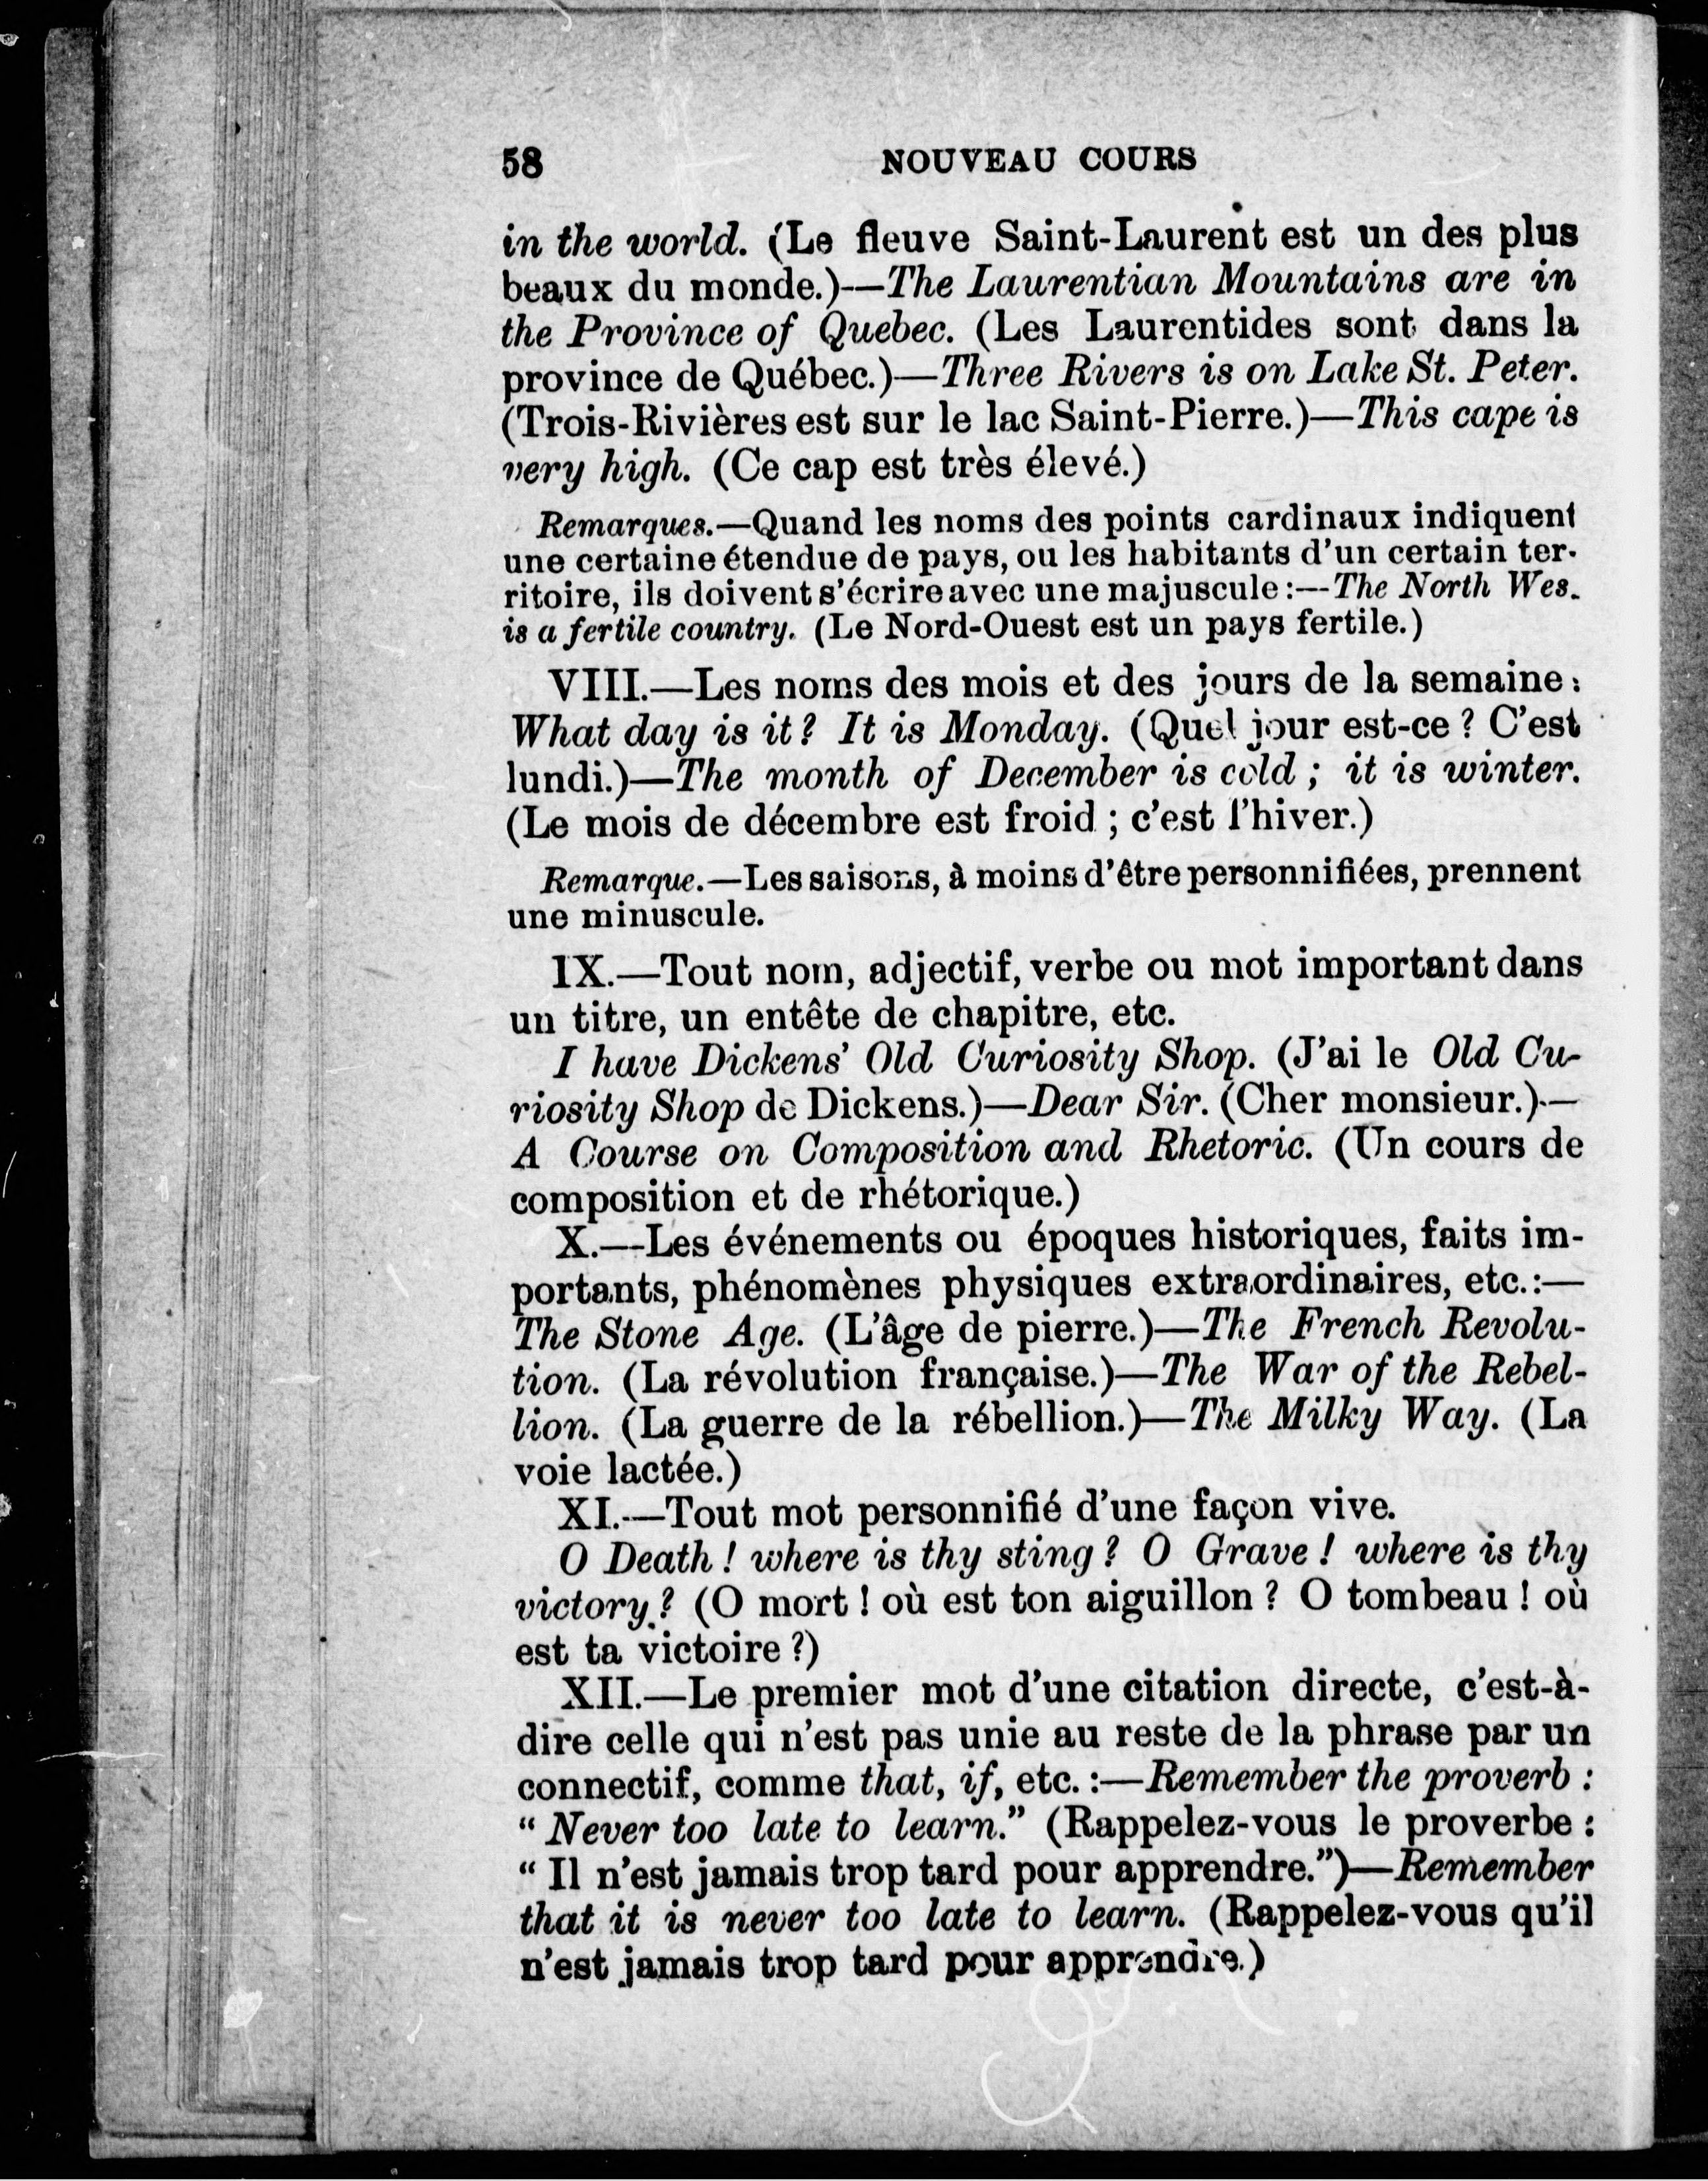 58 NOUVEAU COURS
in the world. (Le fleuve Saint-Laurent est un des plus
beaux du monde.)—The Laurentian Mountains are in
the Province of Quebec. (Les Laurentides sont dans la
province de Québec.)—Three Rivers is on Lake St. Peter.
(Trois-Rivières est sur le lac Saint-Pierre.)—This cape is
very high. (Ce cap est très élevé.)
Remarques.—Quand les noms des points cardinaux indiquent
une certaine étendue de pays, ou les habitants d'un certain ter-
ritoire, ils doivent s'écrire avec une majuscule :—The North Wes.
is a fertile country. (Le Nord-Ouest est un pays fertile.)
VIII.—Les noms des mois et des jours de la semaine :
What day is it ? It is Monday. (Quel jour est-ce ? C'est
lundi.)—The month of December is cold ; it is winter.
(Le mois de décembre est froid ; c'est l'hiver.)
Remarque.—Les saisons, à moins d'être personnifiées, prennent
une minuscule.
IX.—Tout nom, adjectif, verbe ou mot important dans
un titre, un entête de chapitre, etc.
I have Dickens' Old Curiosity Shop. (J'ai le Old Cu-
riosity Shop de Dickens.)—Dear Sir. (Cher monsieur.)—
A Course on Composition and Rhetoric. (Un cours de
composition et de rhétorique.)
X.—Les événements ou époques historiques, faits im-
portants, phénomènes physiques extraordinaires, etc.:—
The Stone Age. (L'âge de pierre.)—The French Revolu-
tion. (La révolution française.)—The War of the Rebel-
lion. (La guerre de la rébellion.)—The Milky Way. (La
voie lactée.)
XI.—Tout mot personnifié d'une façon vive.
O Death ! where is thy sting ? O Grave ! where is thy
victory ? (O mort ! où est ton aiguillon ? O tombeau ! où
est ta victoire ?)
XII.—Le premier mot d'une citation directe, c'est-à-
dire celle qui n'est pas unie au reste de la phrase par un
connectif, comme that, if, etc. :—Remember the proverb :
“ Never too late to learn.” (Rappelez-vous le proverbe :
“ Il n'est jamais trop tard pour apprendre.”)—Remember
that it is never too late to learn. (Rappelez-vous qu'il
n'est jamais trop tard pour apprendre.)